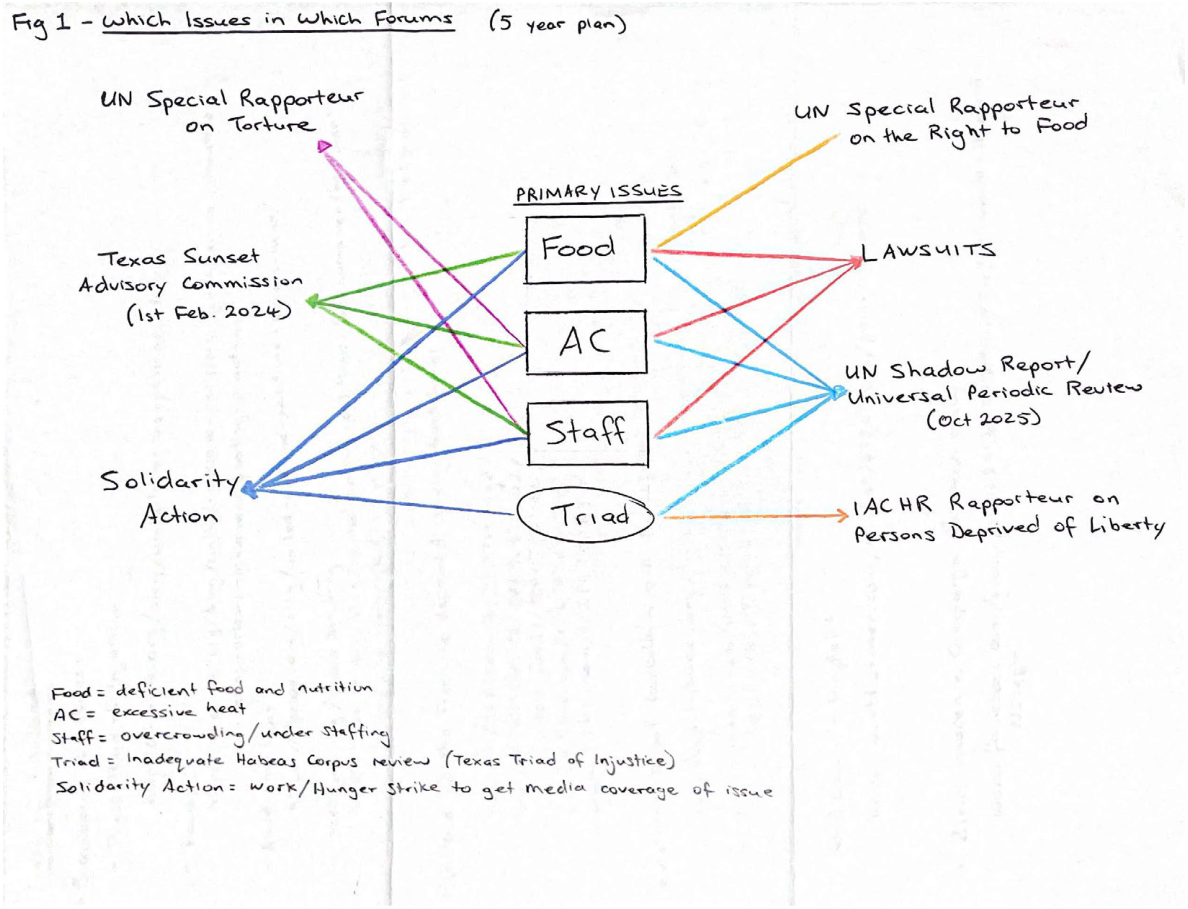 Fig 1 - Which Issues in Which Forums (5 year plan)
UN Special Rapporteur
on Torture
UN Special Rapporteur
on the Right to Food
PRIMARY ISSUES
Food
Texas Sunset
Advisory Commission
(1st Feb. 2024)
LAWSUITS
AC
UN Shadow Report/
Universal Periodic Review
(Oct 2025)
Staff
Solidarity
Action
Triad
IACHR Rapporteur on
Persons Deprived of Liberty
Food = deficient food and nutrition
AC = excessive heat
Staff = overcrowding/under staffing
Triad = Inadequate Habeas Corpus review (Texas Triad of Injustice)
Solidarity Action = Work/Hunger Strike to get media coverage of issue